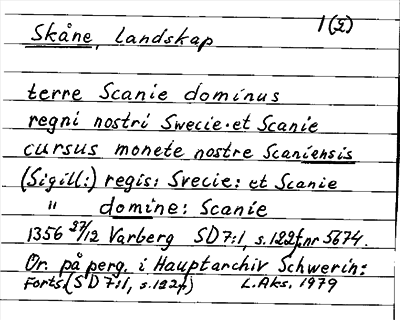 1(2)
Skåne, landskap
terre Scanie dominus
regni nostri Swecie et Scanie
cursus monete nostre Scaniensis
(Sigill:) regis: Svecie: et Scanie
" domine: Scanie
1356 27/12 Varberg SD 7:1, s. 122f, nr 5674.
Or. på perg. i Hauptarchiv Schwerin:
Forts. (SD 7:1, s. 122f) L. Aks. 1979